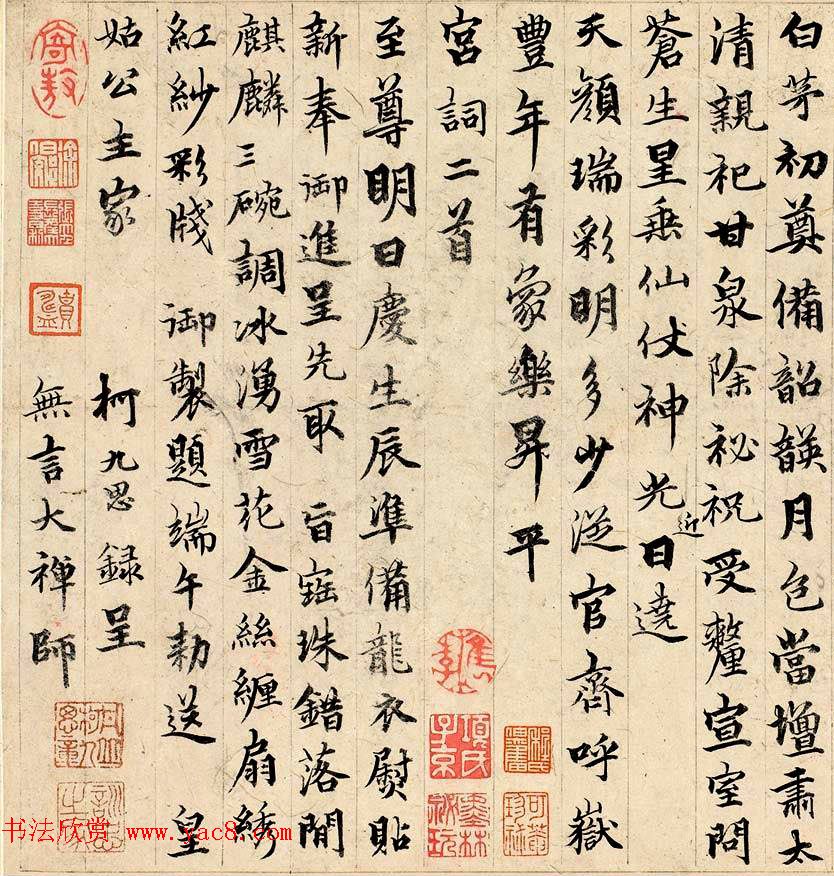 白茅初奠備韶韺月色當壇肅太
清親祀甘泉除祕祝受釐宣室問
蒼生星乘仙仗神光日遶
近
天顏瑞彩明多少從官齊呼嶽
豐年有象樂昇平
宮詞二首
至尊明日慶生辰準備龍衣熨貼
新奉御進呈先取 旨寶珠錯落間
麒麟三碗調冰湧雪花金絲纏扇綉
紅紗彩牋 御製題端午勅送 皇
姑公主家
柯九思録呈
無言大禪師
項氏子京
墨林祕玩
书法欣赏 www.yac8.com